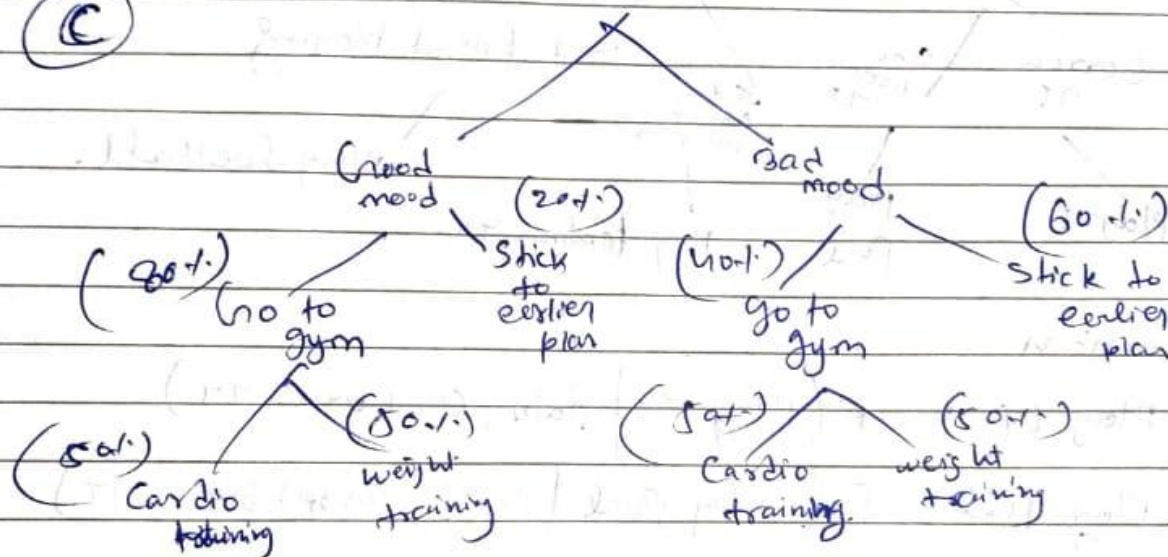 C
Good mood
Bad mood.
(20%)
(60%)
(80%)
Go to gym
Stick to earlier plan
(40%)
go to gym
Stick to earlier plan
(50%)
Cardio training
(50%)
weight training
(50%)
Cardio training.
(50%)
weight training